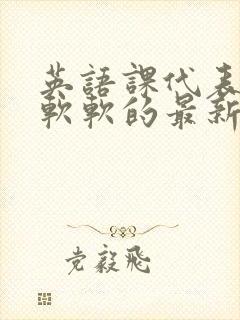 英語課代表
軟軟的最新
党毅飛